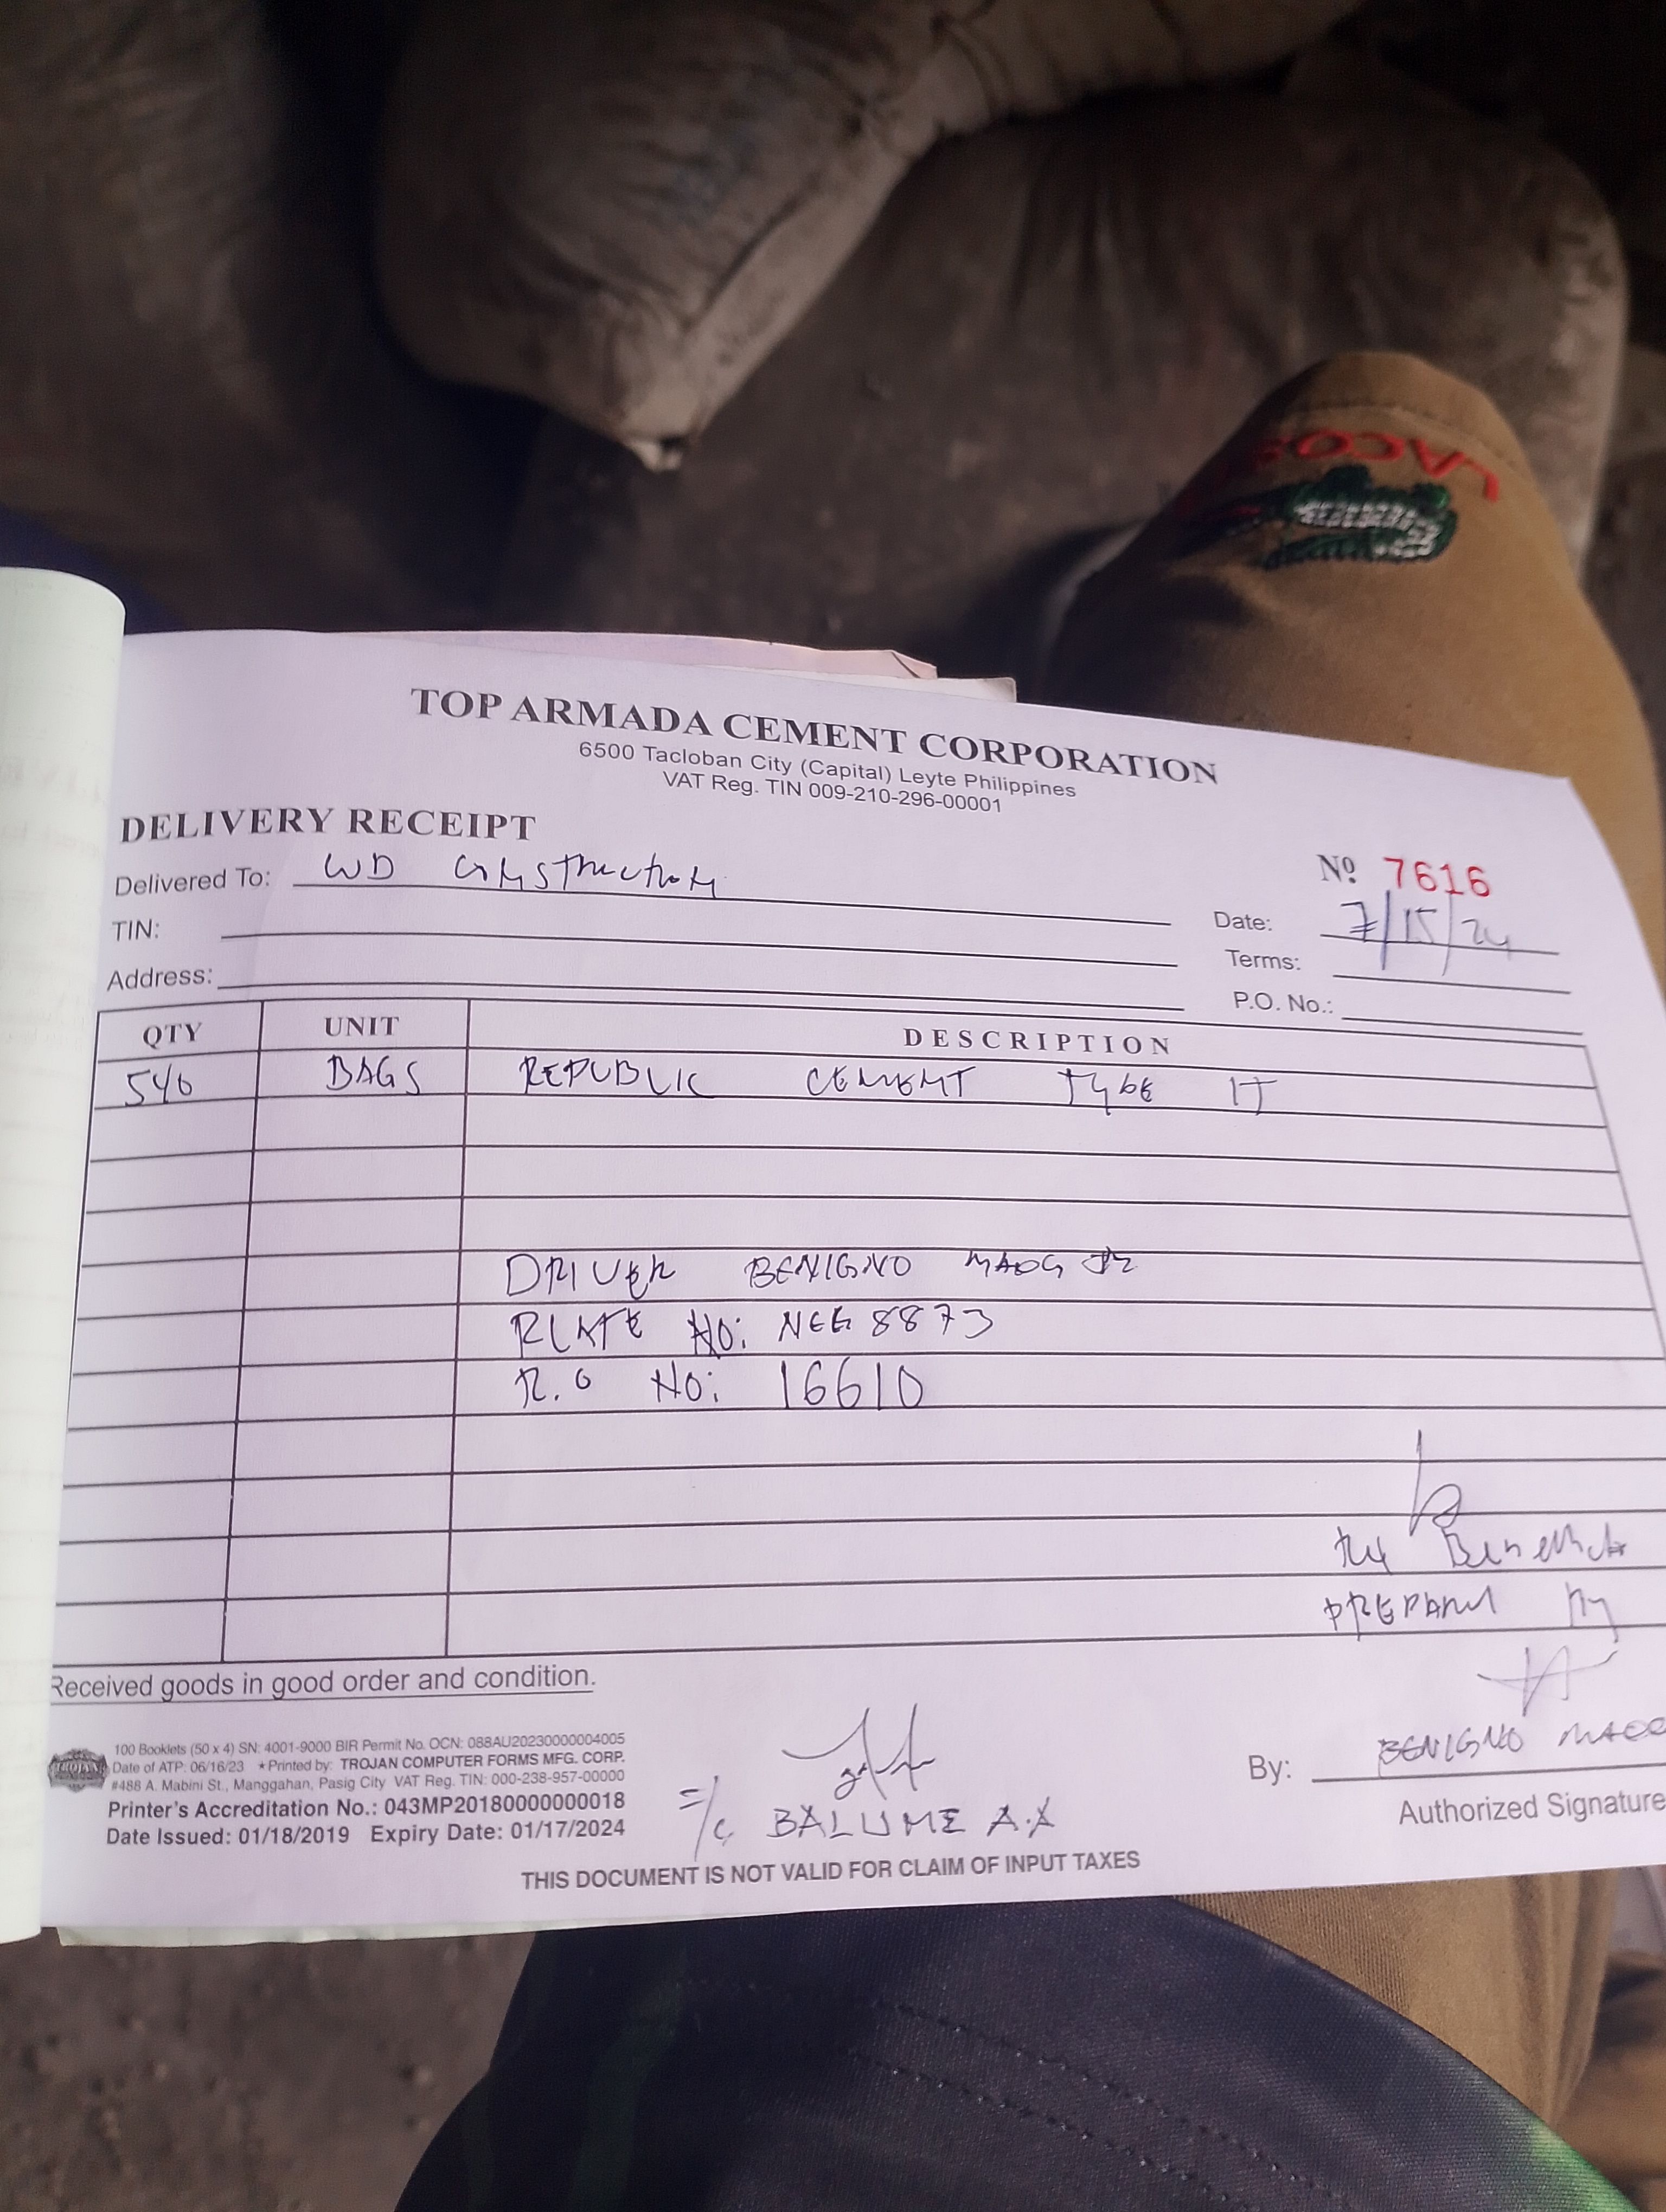 LACOS
TOP ARMADA CEMENT CORPORATION
6500 Tacloban City (Capital) Leyte Philippines
VAT Reg. TIN 009-210-296-00001
DELIVERY RECEIPT
Nº 7616
Delivered To: WD Construction
Date: 7/15/24
TIN:
Terms:
Address:
P.O. No.:
QTY UNIT DESCRIPTION
540 BAGS REPUBLIC CEMENT TYPE IT
DRIVER BENIGNO MAOG JR
PLATE NO: NEG 8873
R.O NO: 16610
PREPARED BY
Received goods in good order and condition.
100 Booklets (50 x 4) SN: 4001-9000 BIR Permit No. OCN: 088AU20230000004005
Date of ATP: 06/16/23 ★Printed by: TROJAN COMPUTER FORMS MFG. CORP.
#488 A. Mabini St., Manggahan, Pasig City VAT Reg. TIN: 000-238-957-00000
Printer's Accreditation No.: 043MP20180000000018
Date Issued: 01/18/2019 Expiry Date: 01/17/2024
TROJAN
BALUME A.A
By: BENIGNO MAOG
Authorized Signature
THIS DOCUMENT IS NOT VALID FOR CLAIM OF INPUT TAXES